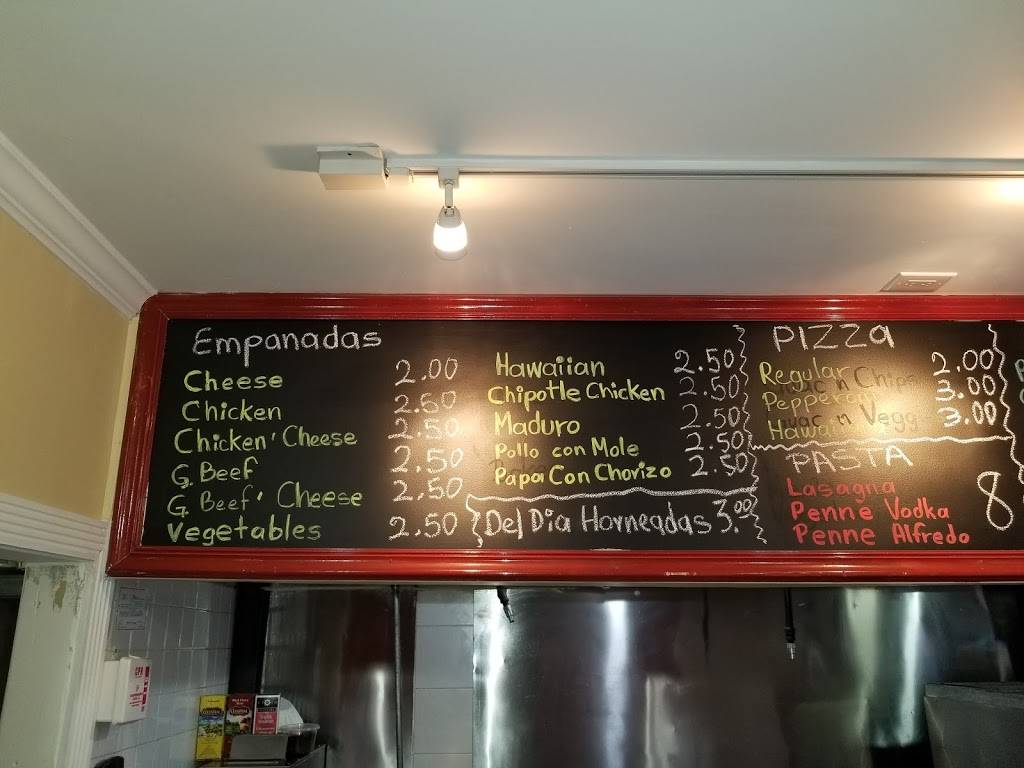 Empanadas
Cheese 2.00
Chicken 2.50
Chicken' Cheese 2.50
G. Beef 2.50
G. Beef' Cheese 2.50
Vegetables 2.50
Hawaiian 2.50
Chipotle Chicken 2.50
Maduro 2.50
Pollo con Mole 2.50
Papa Con Chorizo 2.50
Del Dia Horneadas 3.00
PIZZA
Regular 2.00
Pepperoni 3.00
Hawaiian 3.00
PASTA
Lasagna
Penne Vodka 8
Penne Alfredo